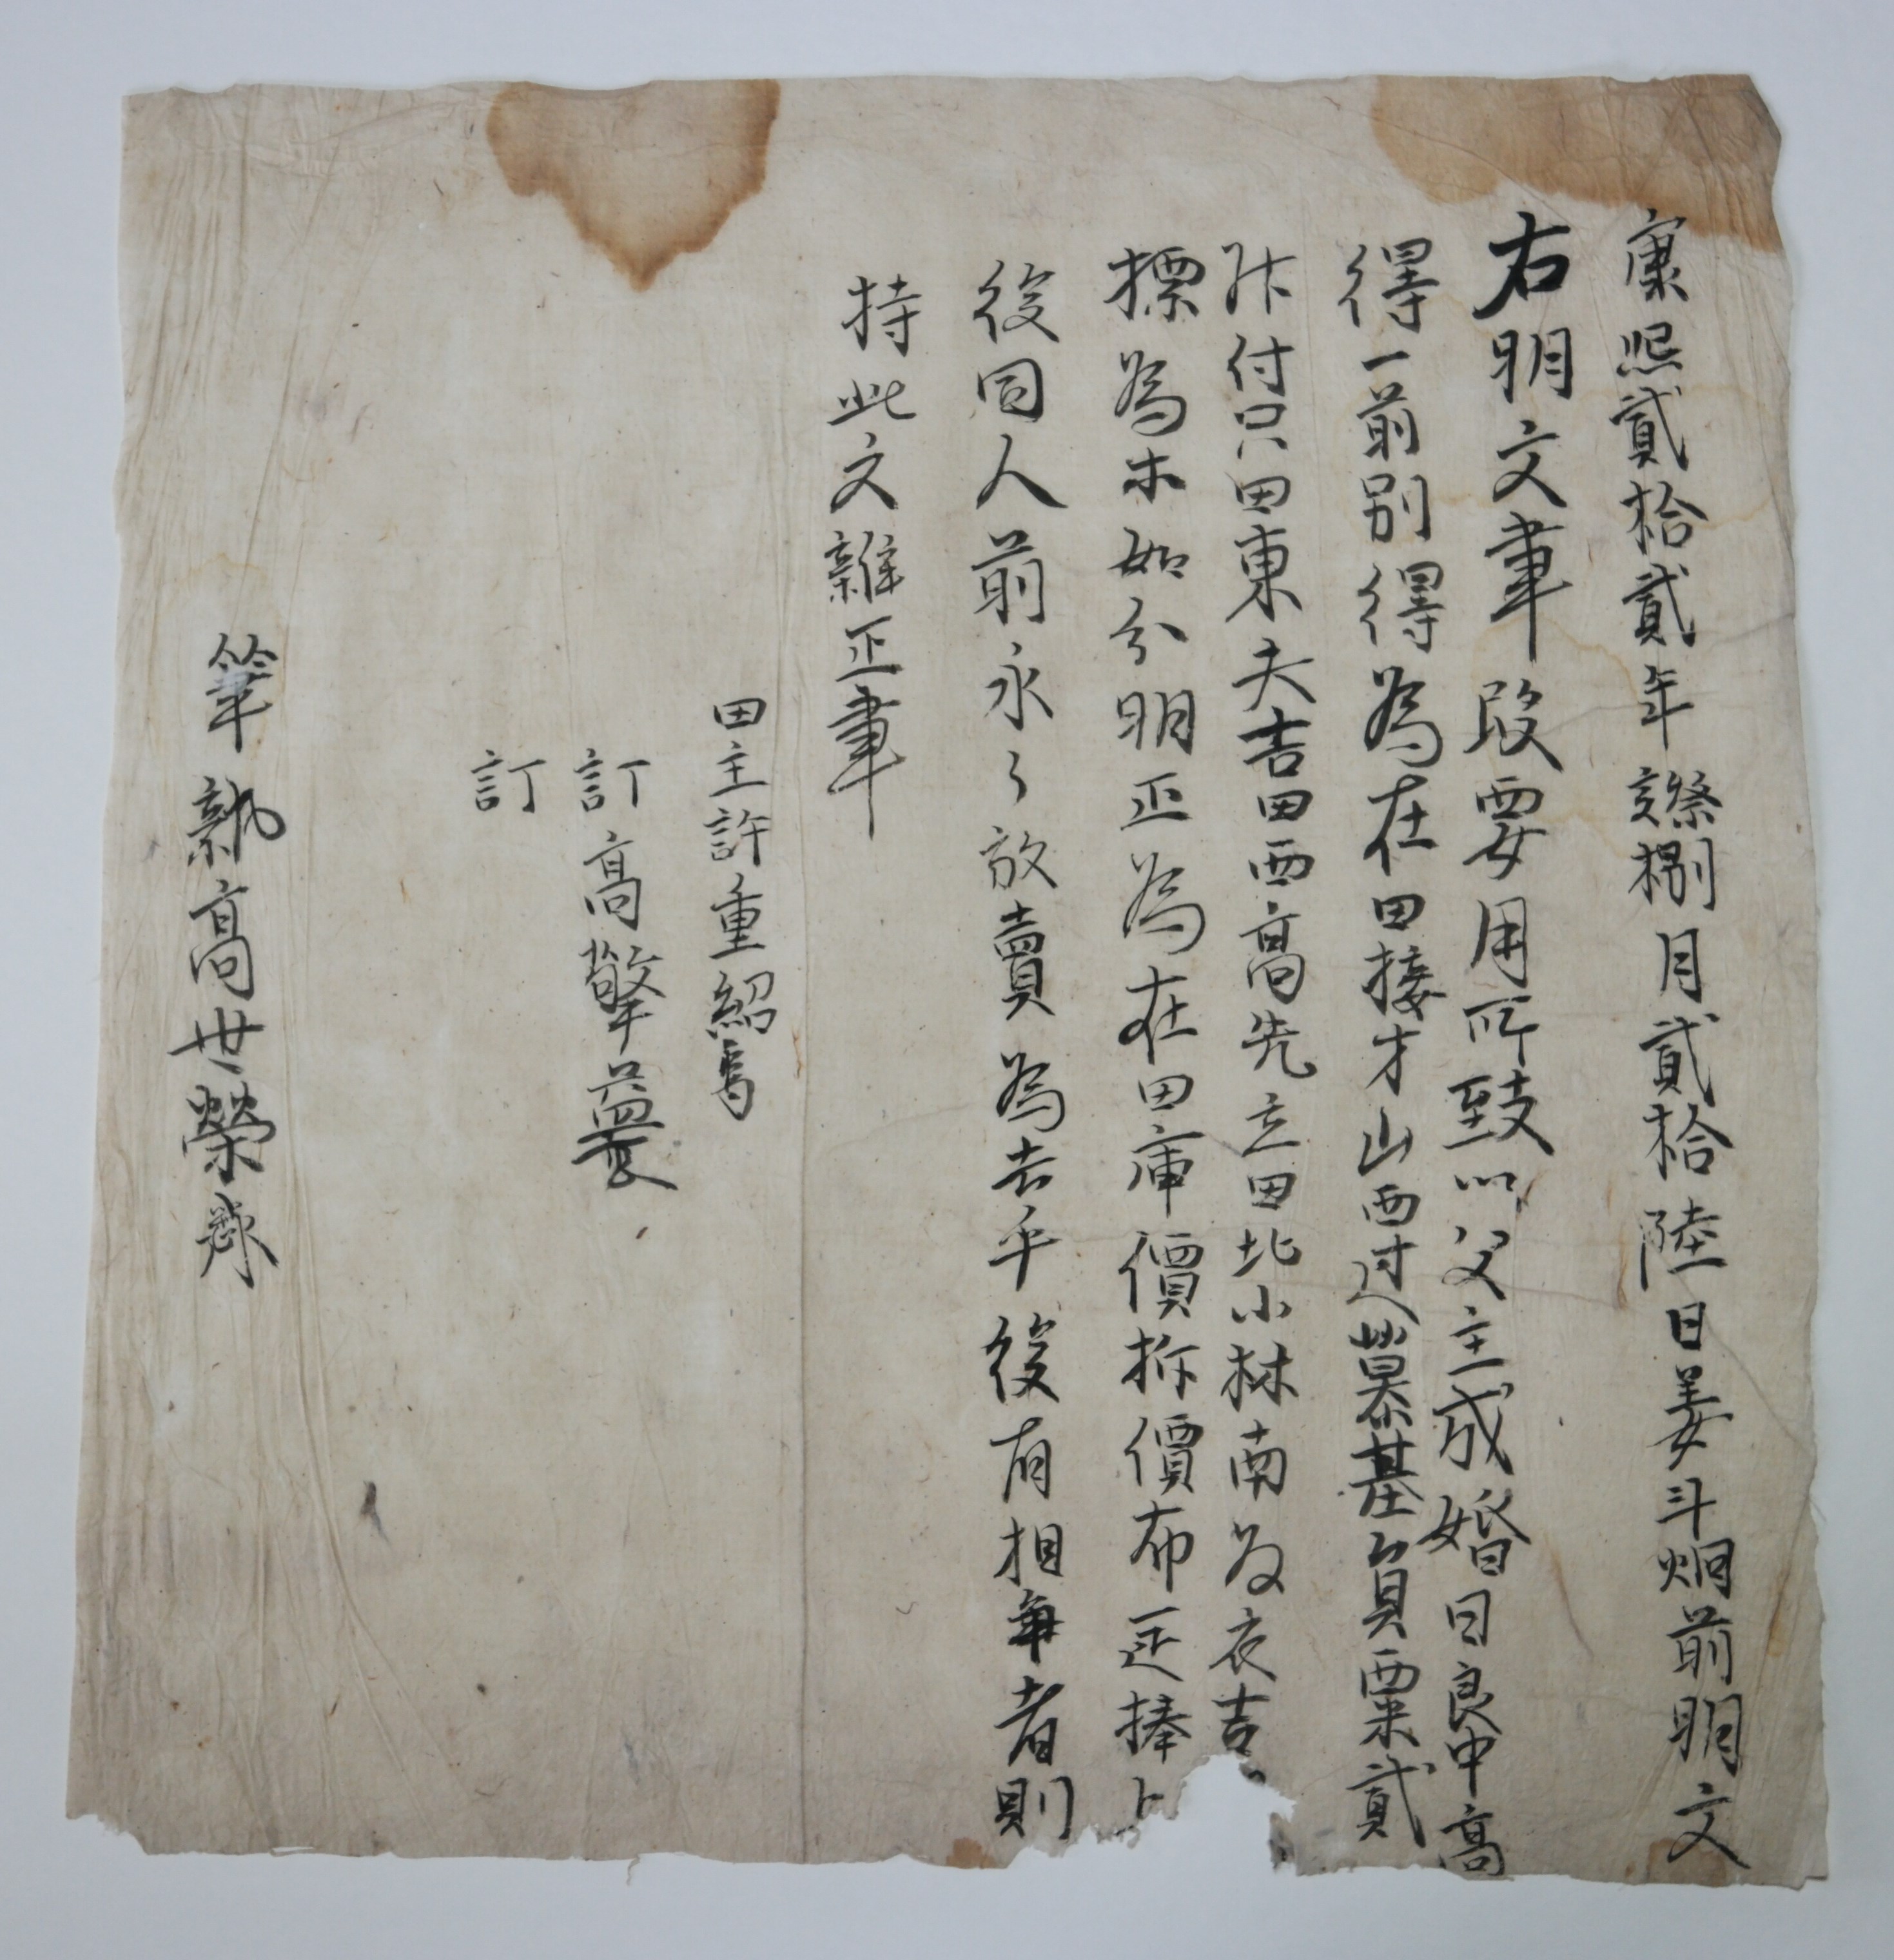 康熙貳拾貳年癸捌月貳拾陸日姜斗烱前明文
右明文事段要用所致以父主成婚日良中高
得一前別得為在田接才山西过暮基負粟貳
作付只田東夫吉田西高先立田北小林南為衣吉
標為木如分明正為在田庫價折價布一疋捧上
後同人前永々放賣為去乎後有相争者則
持此文雜正事
田主許重紹
訂高擎
訂
筆執高世榮